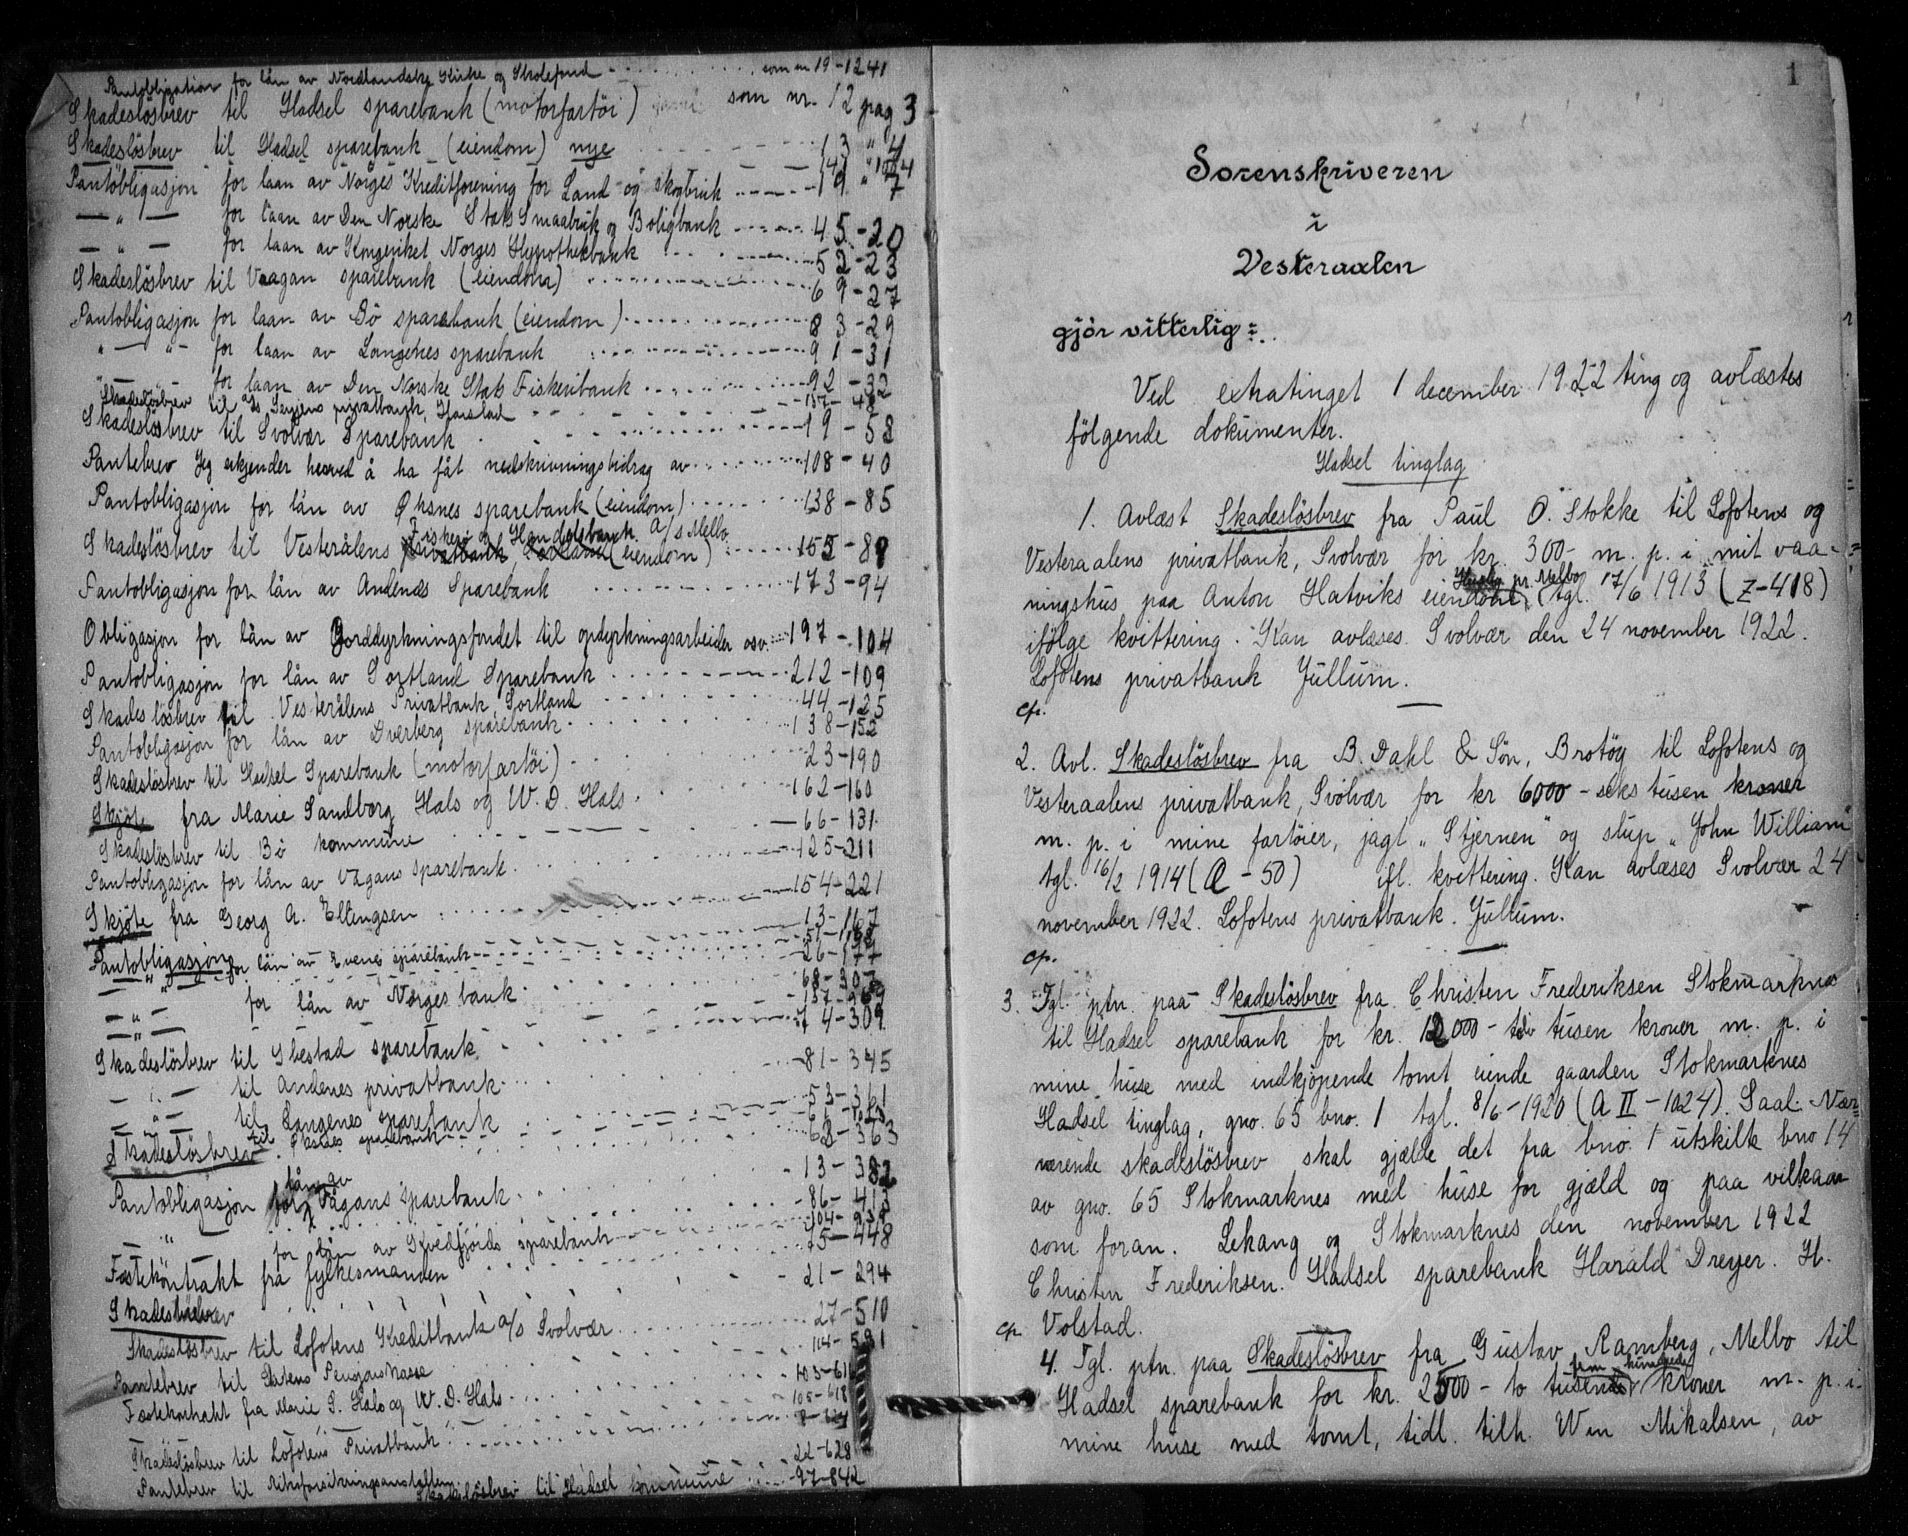 Pantobligation for lån av Nordlandske Kirke og Skolefond som nr 19-1241
Skadeslösbrev til Hadsel sparebank (motorfartöi) som nr. 12 pag 3
Skadeslösbrev til Hadsel sparebank (eiendom) nye 13 " 4
Pantobligasjon for laan av Norges Kreditforening for Land og skogbruk 19 " 7
— " — for laan av Den Norske Stats Smaabruk og Boligbank 45-20
— " — for laan av Kongeriket Norges Hypothekbank 52-23
Skadeslösbrev til Vaagan sparebank (eiendom) 69-27
Pantobligasjon for laan av Bö sparebank (eiendom) 83-29
" — " for laan av Langenes sparebank 91-31
" for laan av Den Norske Stats Fiskeribank 92-32
Skadeslösbrev til a/s Senjens privatbank, Harstad 157-48
Skadeslösbrev til Svolvær Sparebank 19-58
Pantebrev Jeg erkjender herved å ha fåt nedskrivningsbidrag av 108-40
Pantobligasjon for lån av Øksnes sparebank (eiendom) 138-85
Fiskeri og Handelsbank a/s Melbo
Skadeslösbrev til Vesterålens privatbank, Sortland (eiendom) 155-89
Pantobligasjon for lån av Andenes Sparebank 173-94
Obligasjon for lån av Jorddyrkningsfondet til opdyrkningsarbeider osv. 197-104
Pantobligasjon for lån av Sortland Sparebank 212-109
Skadeslösbrev til Vesterålens Privatbank, Sortland 44-125
Pantobligasjon for lån av Dverberg sparebank 138-152
Skadeslösbrev til Hadsel Sparebank (motorfartöi) 23-190
Skjöte fra Marie Sandborg Hals og W. D. Hals 162-160
Skadeslösbrev til Bö kommune 66-131
Pantobligasjon for lån av Vågans sparebank 125-211
Skjöte fra Georg A. Ellingsen 154-221
Pantobligasjon for lån av Evenes sparebank
— " — for lån av Norges bank
— " —
74-309
Skadeslösbrev til Ibestad sparebank
— " — til Andenes privatbank 81-345
— " — til Langenes sparebank 53-361
Skadeslösbrev til sparebank 63-363
lån av
Pantobligasjon for Vågans sparebank 13-382
— " — for lån av Kvedfjords sparebank 86-413
Festekontrakt fra fylkesmanden 15-448
Skadeslösbrev 21-294
Skadeslösbrev til Lofotens Kreditbank a/s Svolvær 27-510
Pantebrev til Statens Pensjonskasse 114-591
Festekontrakt fra Marie S. Hals og W. D. Hals 105-618
Skadeslösbrev til Lofotens Privatbank
Pantebrev til Riksforsikringsanstalten 22-628
Skadeslösbrev til Hadsel kommune 97-842
1
Sorenskriveren
i
Vesteraalen
gjör vitterlig:
Ved extratinget 1 december 1922 ting og avlæstes
fölgende dokumenter.
Hadsel tinglag
1. Avlæst Skadeslösbrev fra Paul O. Stokke til Lofotens og
Vesteraalens privatbank, Svolvær for kr. 300- m. p. i mit vaa-
Husby pr. Melbo
ningshus paa Anton Hatviks eiendom, tgl. 17/6 1913 (Z-418)
ifölge kvittering. Kan avlæses. Svolvær den 24 november 1922.
Lofotens privatbank Jullum.
cp.
2. Avl. Skadeslösbrev fra B. Dahl & Sön, Brotöy til Lofotens og
Vesteraalens privatbank, Svolvær for kr 6000 - seks tusen kroner
m. p. i mine fartöier, jagt „Stjernen" og slup „John William"
tgl. 16/2 1914 (A-50) ifl. kvittering. Kan avlæses Svolvær 24
november 1922. Lofotens privatbank. Jullum.
cp.
3. Tgl. ptn. paa Skadeslösbrev fra Christen Frederiksen Stokmarknes
til Hadsel sparebank for kr. 12000 - tolv tusen kroner m. p. i
mine huse med indkjöpende tomt eiende gaarden Stokmarknes
Hadsel tinglag, gno. 65 bno. 1 tgl. 8/6-1920 (A II-1024). Saal. Nær-
værende skadeslösbrev skal gjælde det fra bno. 1 utskilte bno 14
av gno. 65 Stokmarknes med huse for gjæld og paa vilkaar
som foran. Lekang og Stokmarknes den november 1922
Christen Frederiksen. Hadsel sparebank Harald Dreyer. H.
cp Volstad.
4. Tgl. ptn. paa Skadeslösbrev fra Gustav Ramberg, Melbo til
fem hundrede
Hadsel sparebank for kr. 2500 - to tusend kroner m. p. i
mine huse med tomt, tidl. tilh. Wm Mikalsen, av